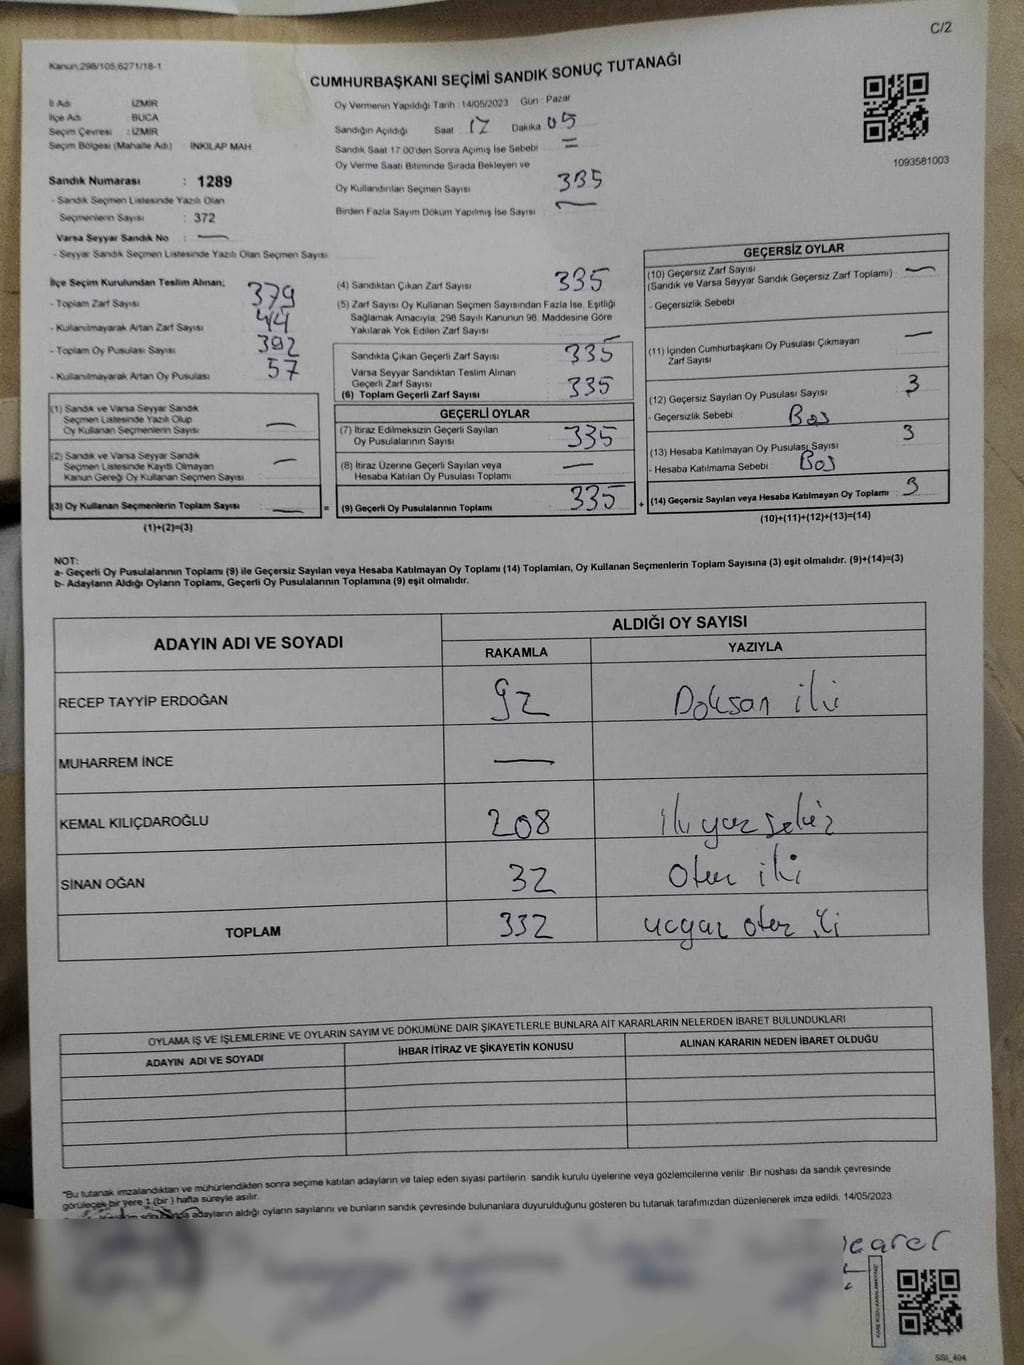 C/2
Kanun:298/105,6271/18-1
CUMHURBAŞKANI SEÇİMİ SANDIK SONUÇ TUTANAĞI
İl Adı : İZMİR
İlçe Adı : BUCA
Seçim Çevresi : İZMİR
Seçim Bölgesi (Mahalle Adı) : İNKILAP MAH.
Sandık Numarası : 1289
- Sandık Seçmen Listesinde Yazılı Olan
Seçmenlerin Sayısı : 372
Varsa Seyyar Sandık No : —
- Seyyar Sandık Seçmen Listesinde Yazılı Olan Seçmen Sayısı
Oy Vermenin Yapıldığı Tarih :14/05/2023 Gün : Pazar
Sandığın Açıldığı Saat : 17 Dakika : 05
Sandık Saat 17:00'den Sonra Açımış İse Sebebi : =
Oy Verme Saati Bitiminde Sırada Bekleyen ve
Oy Kullandırılan Seçmen Sayısı : 335
Birden Fazla Sayım Döküm Yapılmış İse Sayısı : —
1093581003
İlçe Seçim Kurulundan Teslim Alınan;
- Toplam Zarf Sayısı : 379
- Kullanılmayarak Artan Zarf Sayısı : 44
- Toplam Oy Pusulası Sayısı : 392
- Kullanılmayarak Artan Oy Pusulası : 57
(1) Sandık ve Varsa Seyyar Sandık
Seçmen Listesinde Yazılı Olup
Oy Kullanan Seçmenlerin Sayısı —
(2) Sandık ve Varsa Seyyar Sandık
Seçmen Listesinde Kayıtlı Olmayan
Kanun Gereği Oy Kullanan Seçmen Sayısı —
(3) Oy Kullanan Seçmenlerin Toplam Sayısı —
(1)+(2)=(3)
=
(4) Sandıktan Çıkan Zarf Sayısı : 335
(5) Zarf Sayısı Oy Kullanan Seçmen Sayısından Fazla İse, Eşitliği
Sağlamak Amacıyla; 298 Sayılı Kanunun 98. Maddesine Göre
Yakılarak Yok Edilen Zarf Sayısı :
Sandıkta Çıkan Geçerli Zarf Sayısı 335
Varsa Seyyar Sandıktan Teslim Alınan
Geçerli Zarf Sayısı
(6) Toplam Geçerli Zarf Sayısı 335
GEÇERLİ OYLAR
(7) İtiraz Edilmeksizin Geçerli Sayılan
Oy Pusulalarının Sayısı 335
(8) İtiraz Üzerine Geçerli Sayılan veya
Hesaba Katılan Oy Pusulası Toplamı —
(9) Geçerli Oy Pusulalarının Toplamı 335
+
GEÇERSİZ OYLAR
(10) Geçersiz Zarf Sayısı
(Sandık ve Varsa Seyyar Sandık Geçersiz Zarf Toplamı) —
- Geçersizlik Sebebi
(11) İçinden Cumhurbaşkanı Oy Pusulası Çıkmayan
Zarf Sayısı —
(12) Geçersiz Sayılan Oy Pusulası Sayısı 3
- Geçersizlik Sebebi Boş
(13) Hesaba Katılmayan Oy Pusulası Sayısı 3
- Hesaba Katılmama Sebebi Boş
(14) Geçersiz Sayılan veya Hesaba Katılmayan Oy Toplamı 3
(10)+(11)+(12)+(13)=(14)
NOT:
a- Geçerli Oy Pusulalarının Toplamı (9) ile Geçersiz Sayılan veya Hesaba Katılmayan Oy Toplamı (14) Toplamları, Oy Kullanan Seçmenlerin Toplam Sayısına (3) eşit olmalıdır. (9)+(14)=(3)
b- Adayların Aldığı Oyların Toplamı, Geçerli Oy Pusulalarının Toplamına (9) eşit olmalıdır.
ADAYIN ADI VE SOYADI
ALDIĞI OY SAYISI
RAKAMLA YAZIYLA
RECEP TAYYİP ERDOĞAN 92 Doksan iki
MUHARREM İNCE —
KEMAL KILIÇDAROĞLU 208 ikiyüz sekiz
SİNAN OĞAN 32 Otuz iki
TOPLAM 332 üçyüz otuz iki
OYLAMA İŞ VE İŞLEMLERİNE VE OYLARIN SAYIM VE DÖKÜMÜNE DAİR ŞİKAYETLERLE BUNLARA AİT KARARLARIN NELERDEN İBARET BULUNDUKLARI
ADAYIN ADI VE SOYADI İHBAR İTİRAZ VE ŞİKAYETİN KONUSU ALINAN KARARIN NEDEN İBARET OLDUĞU
"Bu tutanak imzalandıktan ve mühürlendikten sonra seçime katılan adayların ve talep eden siyasi partilerin sandık kurulu üyelerine veya gözlemcilerine verilir .Bir nüshası da sandık çevresinde
görülecek bir yere 1 (bir ) hafta süreyle asılır.
adayların aldığı oyların sayılarını ve bunların sandık çevresinde bulunanlara duyurulduğunu gösteren bu tutanak tarafımızdan düzenlenerek imza edildi. 14/05/2023
SSI_404